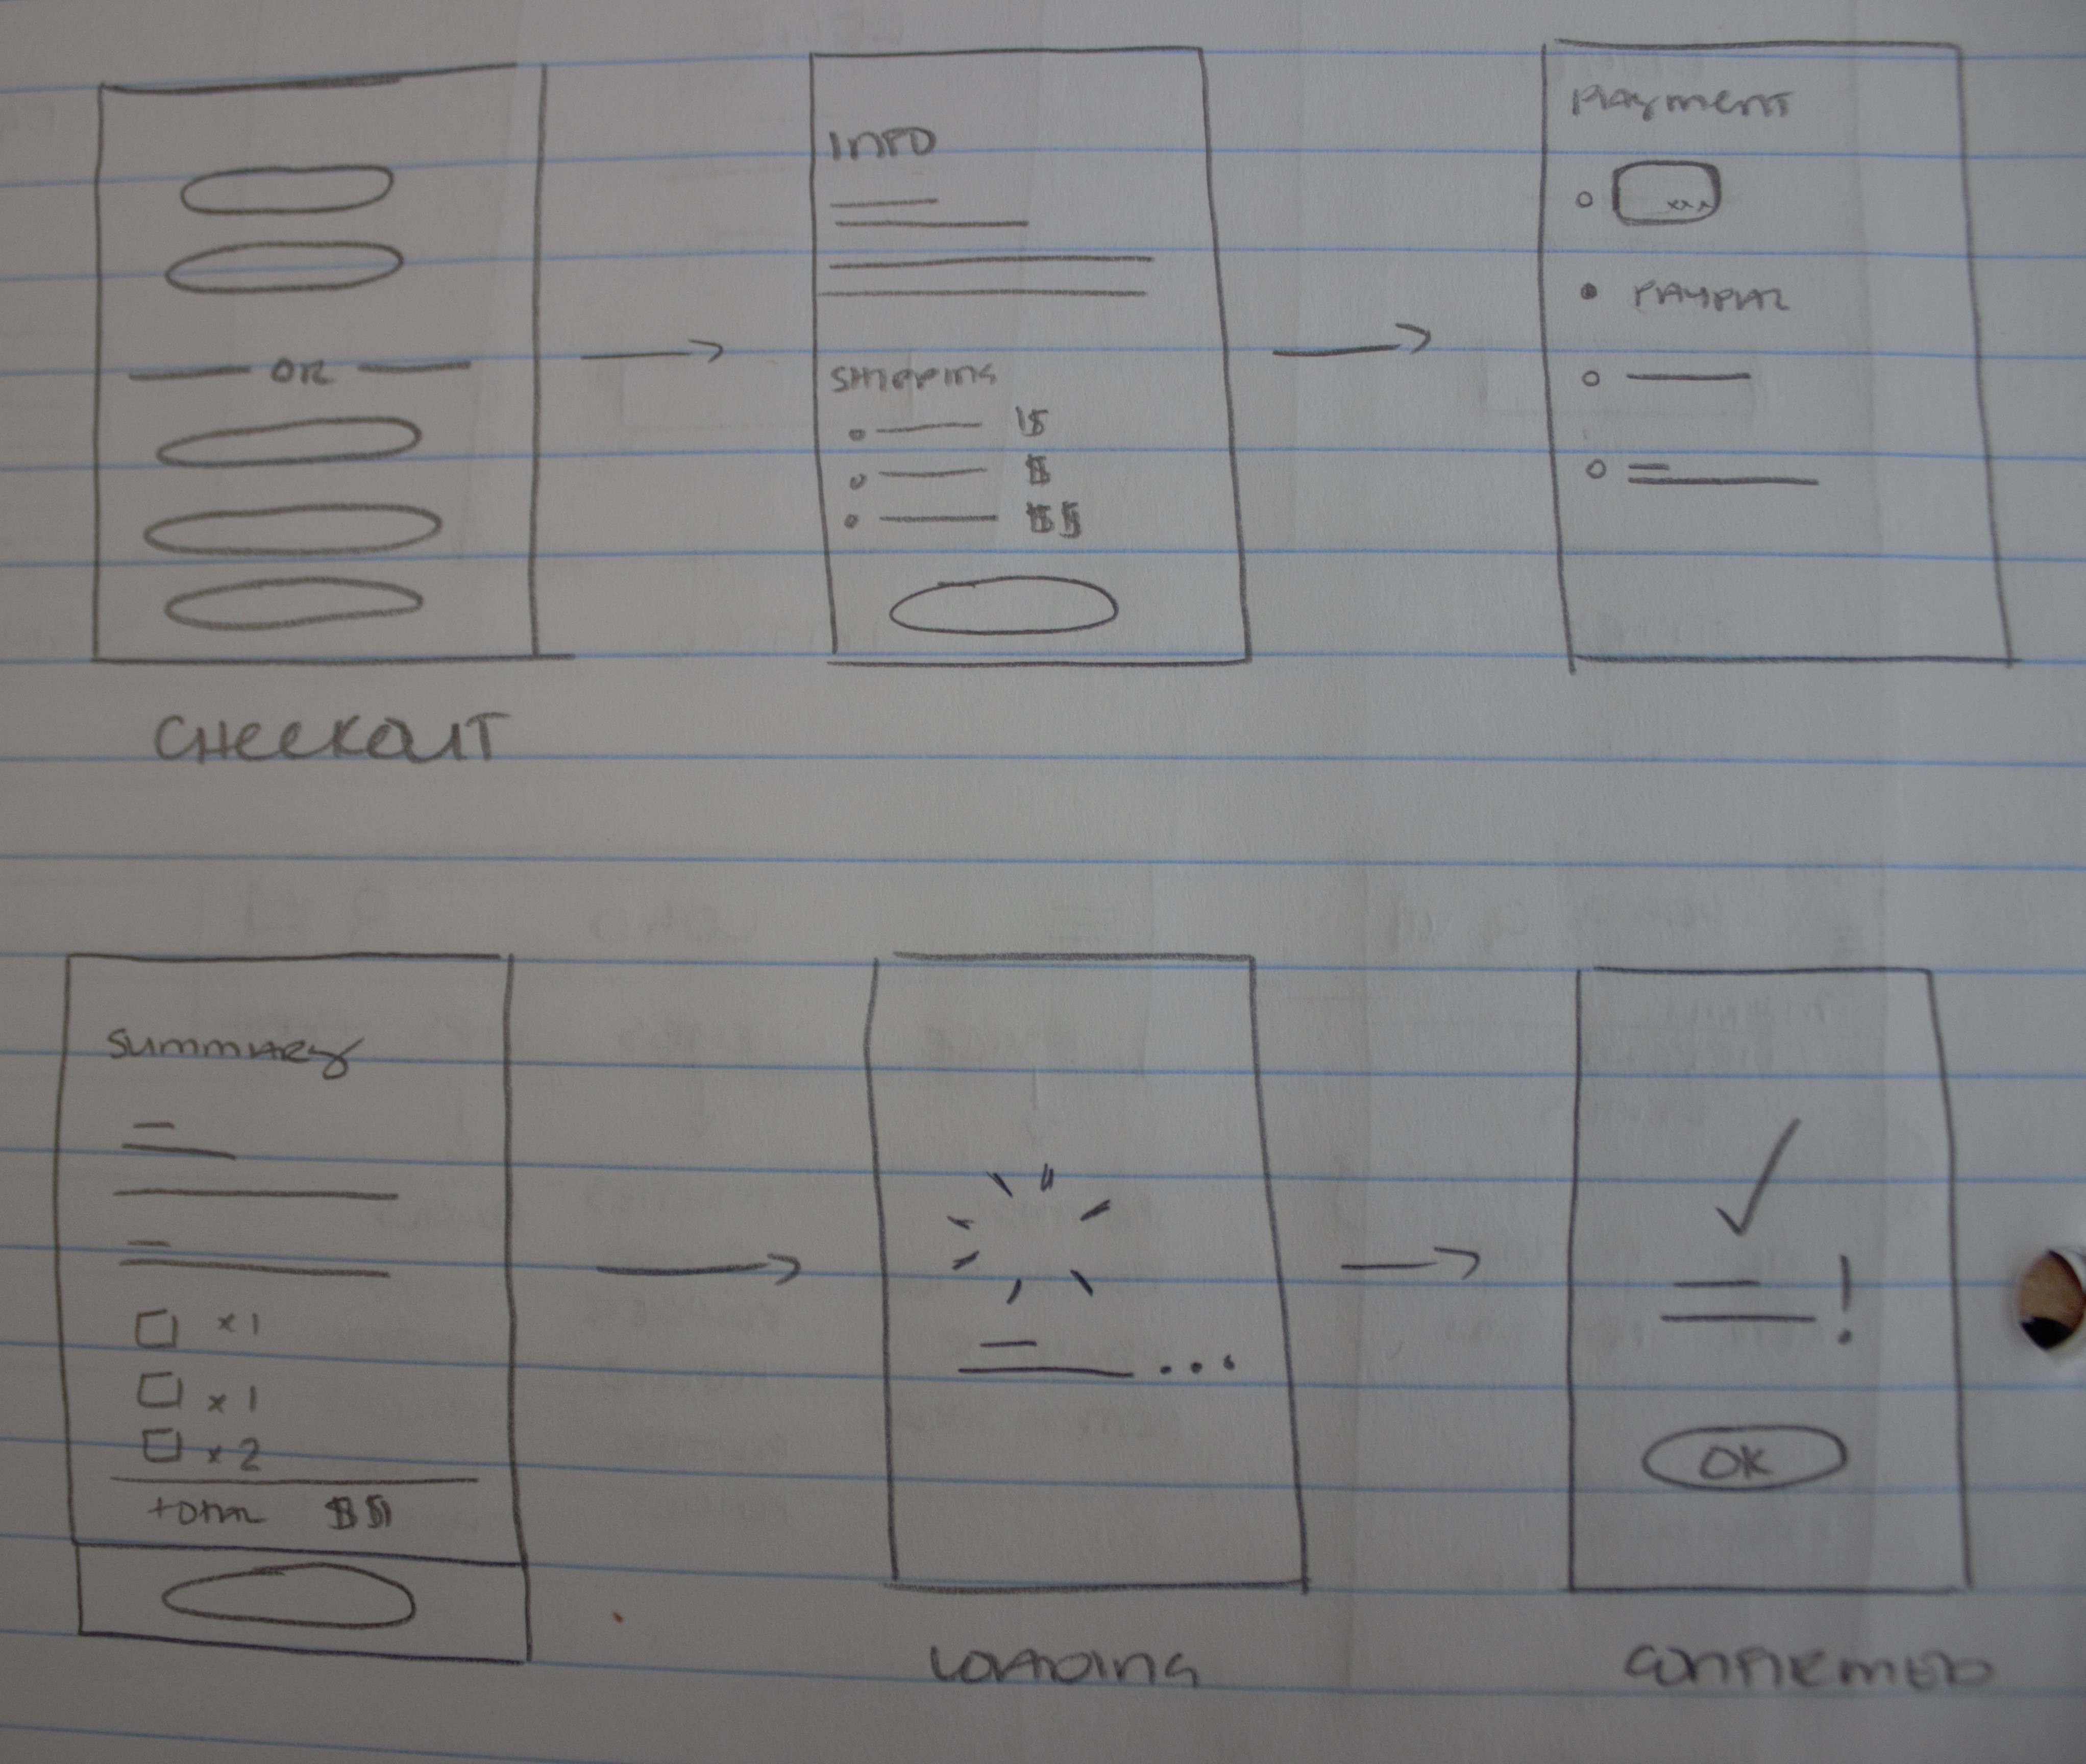 OR
CHECKOUT
INFO
SHIPPING
1$
$
$$
PAYMENT
xxx
PAYPAL
Summary
x1
x1
x2
total $$
LOADING
...
!
OK
CONFIRMED